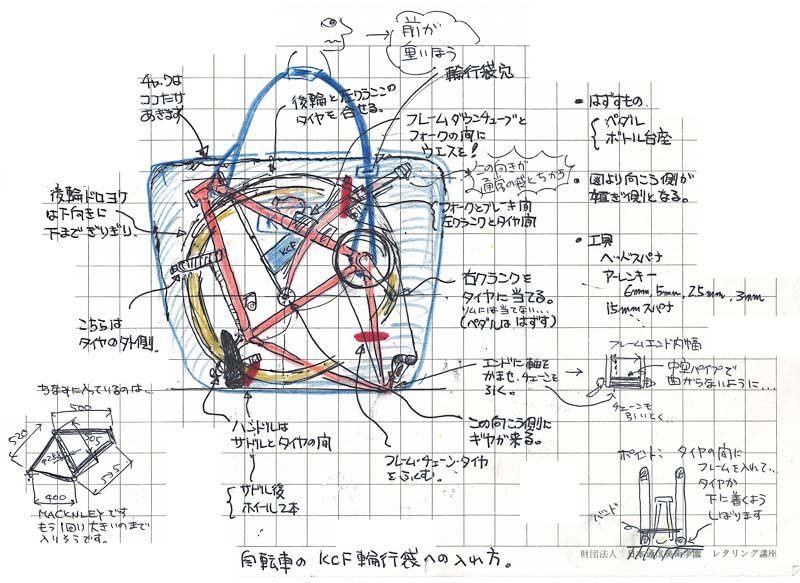 前が
重いほう
チャックは
ココだけ
あきます
後輪と左クランクの
タイヤを合せる。
輪行袋穴
フレームダウンチューブと
フォークの間に
ウエスを!
この向きが
通常の袋とちがう
フォークとブレーキ間
左クランクとタイヤ間
後輪ドロヨケ
は下向きに
下までぎりぎり。
KCF
こちらは
タイヤの外側。
右クランクを
タイヤに当てる。
リムには当てない...
(ペダルははずす)
エンドに軸を
かませ、チェーンを
引く。
この向こう側に
ギヤが来る。
フレーム・チェーン・タイヤ
をふくむ。
ハンドルは
サドルとタイヤの間
サドル後
ホイール2本
はずすもの.
ペダル
ボトル台座
図より向こう側が
担ぎ側となる。
工具
ヘッドスパナ
アーレンキー
6mm, 5mm, 2.5mm, 3mm
15mmスパナ
フレームエンド内幅
中空パイプで
曲がらないように...
チェーンも
引いとく..
ポイント:タイヤの間に
フレームを入れて...
タイヤが
下に着くよう
しばります
バンド
ちなみに入っているのは、
500
520
505
525
400
MACKNLEYです
もう1回り大きいのまで
入りそうです。
自転車のKCF輪行袋への入れ方。
財団法人 日本通信美術学園 レタリング講座